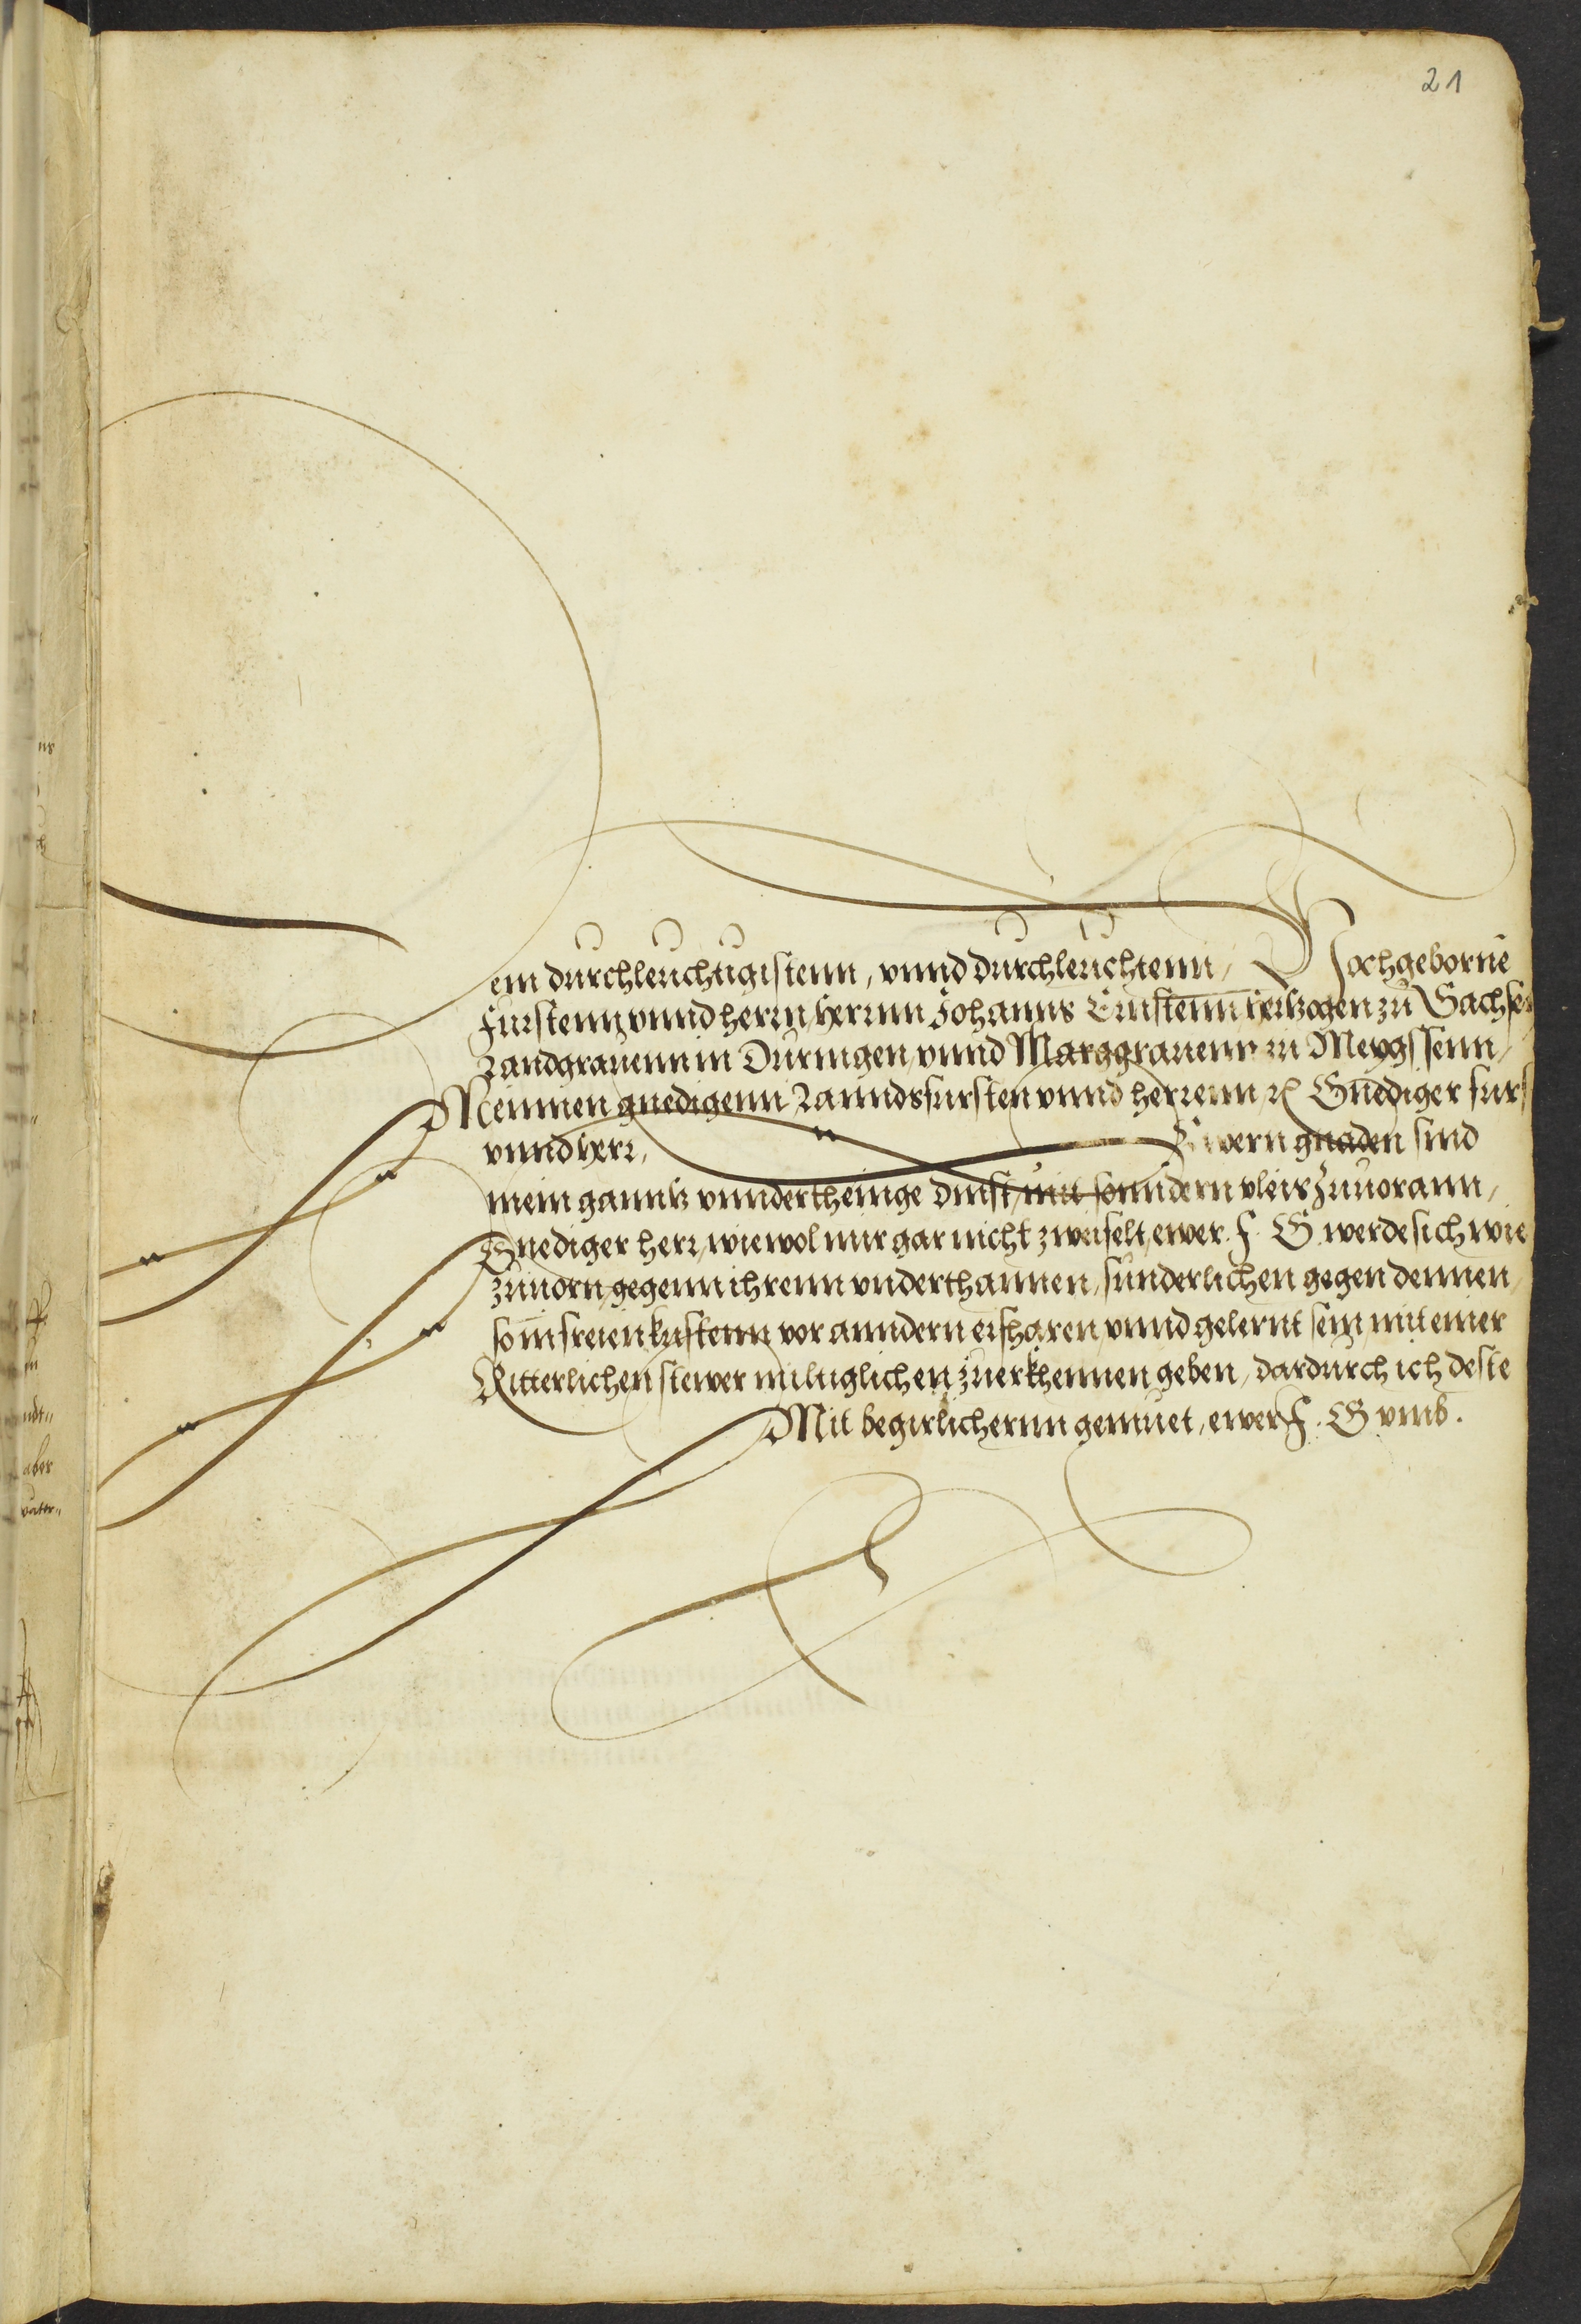 21
em durchleuchtigistenn, vnnd durchleuchtenn, Hochgebornē
Furstenn, vnnd herrn, herrnn Johanns Ernstenn hertzogen zu Sachsen
Landgrauenn in Duringen, vnnd Marggrauenn zu Meygssenn,
Meinnen gnedigenn Lanndsfursten vnnd herrenn, ꝛc Gnediger furst
vnnd herr, Ewern gnaden sind
mein ganntz vnndertheinige dinst, mit sonndern vleis zuuorann,
Gnediger herr, wiewol mir gar nicht zweifelt, ewer. F. G. werde sich wie
zuuorn, gegenn ihrenn vnderthannen, sunderlichen gegen dennen,
so in freien kunstenn vor anndern erfharen, vnnd gelernt sein, mit einer
Ritterlichen stewer miltiglichen zuerkhennen geben, dardurch ich deste
Mit begirlichernn gemuet, ewer F. G vmb.
aber